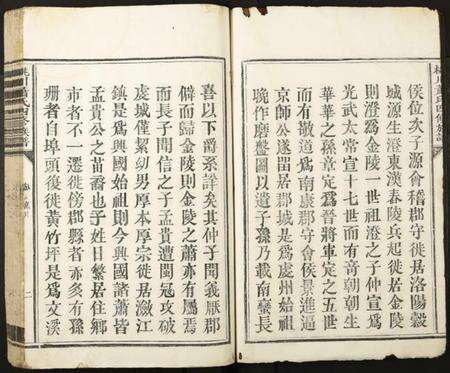 侯位次子源會稽郡守徙居洛陽縠
城源生澄東漢舂陵兵起徙居金陵
則澄爲金陵一世祖澄之子仲宣爲
光武太常宣十七世而有奇朝朝生
華華之孫章定爲晉將軍定之五世
而有敬道爲南康郡守會侯景進逼
京師公遂留居郡城是爲虔州始祖
晚作磨盤圖以遺子孫乃載南蠻長
喜以下爵系詳矣其仲子閏義厭郡
僻而歸金陵則金陵之蕭亦有屬焉
而長子閏信之子孟貴遭閏冦攻破
虔城僅絜幼男厚本厚宗徙居瀲江
鎮是爲興國始祖則今興國諸蕭皆
孟貴公之苗裔也子姓日繁居住鄉
市者不一遷徙傍郡縣者亦多有孫
珊者自埠頭後徙黃竹坪是爲文溪